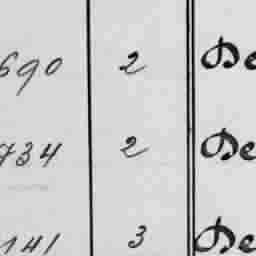 690 2 De
734 2 De
141 3 De